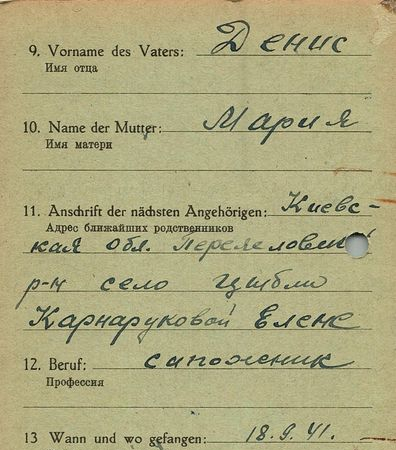 9. Vorname des Vaters: Денис
Имя отца
10. Name der Mutter: Мария
Имя матери
11. Anschrift der nächsten Angehörigen: Киевс-
Адрес ближайших родственников
кая обл.
р-н село Цибли
Карнаруковой Елене
12. Beruf: сапожник
Профессия
13 Wann und wo gefangen: 18.9.41.-